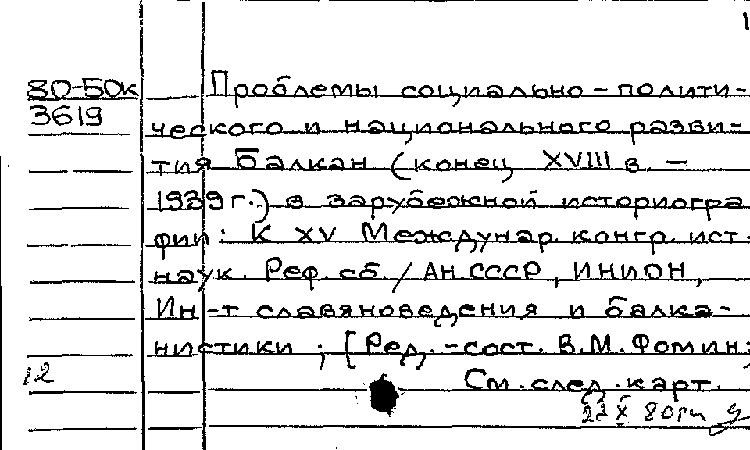 80-50к
3619
Проблемы социально-полити-
ческого и национального разви-
тия Балкан (конец XVIII в. -
1939 г.) в зарубежной историогра
фии: К XV Междунар. конгр. ист.
наук. Реф. сб. / АН СССР, ИНИОН,
Ин-т славяноведения и балка-
нистики ; [Ред.-сост. В.М. Фомин;
См. след. карт.
12
22 X 80